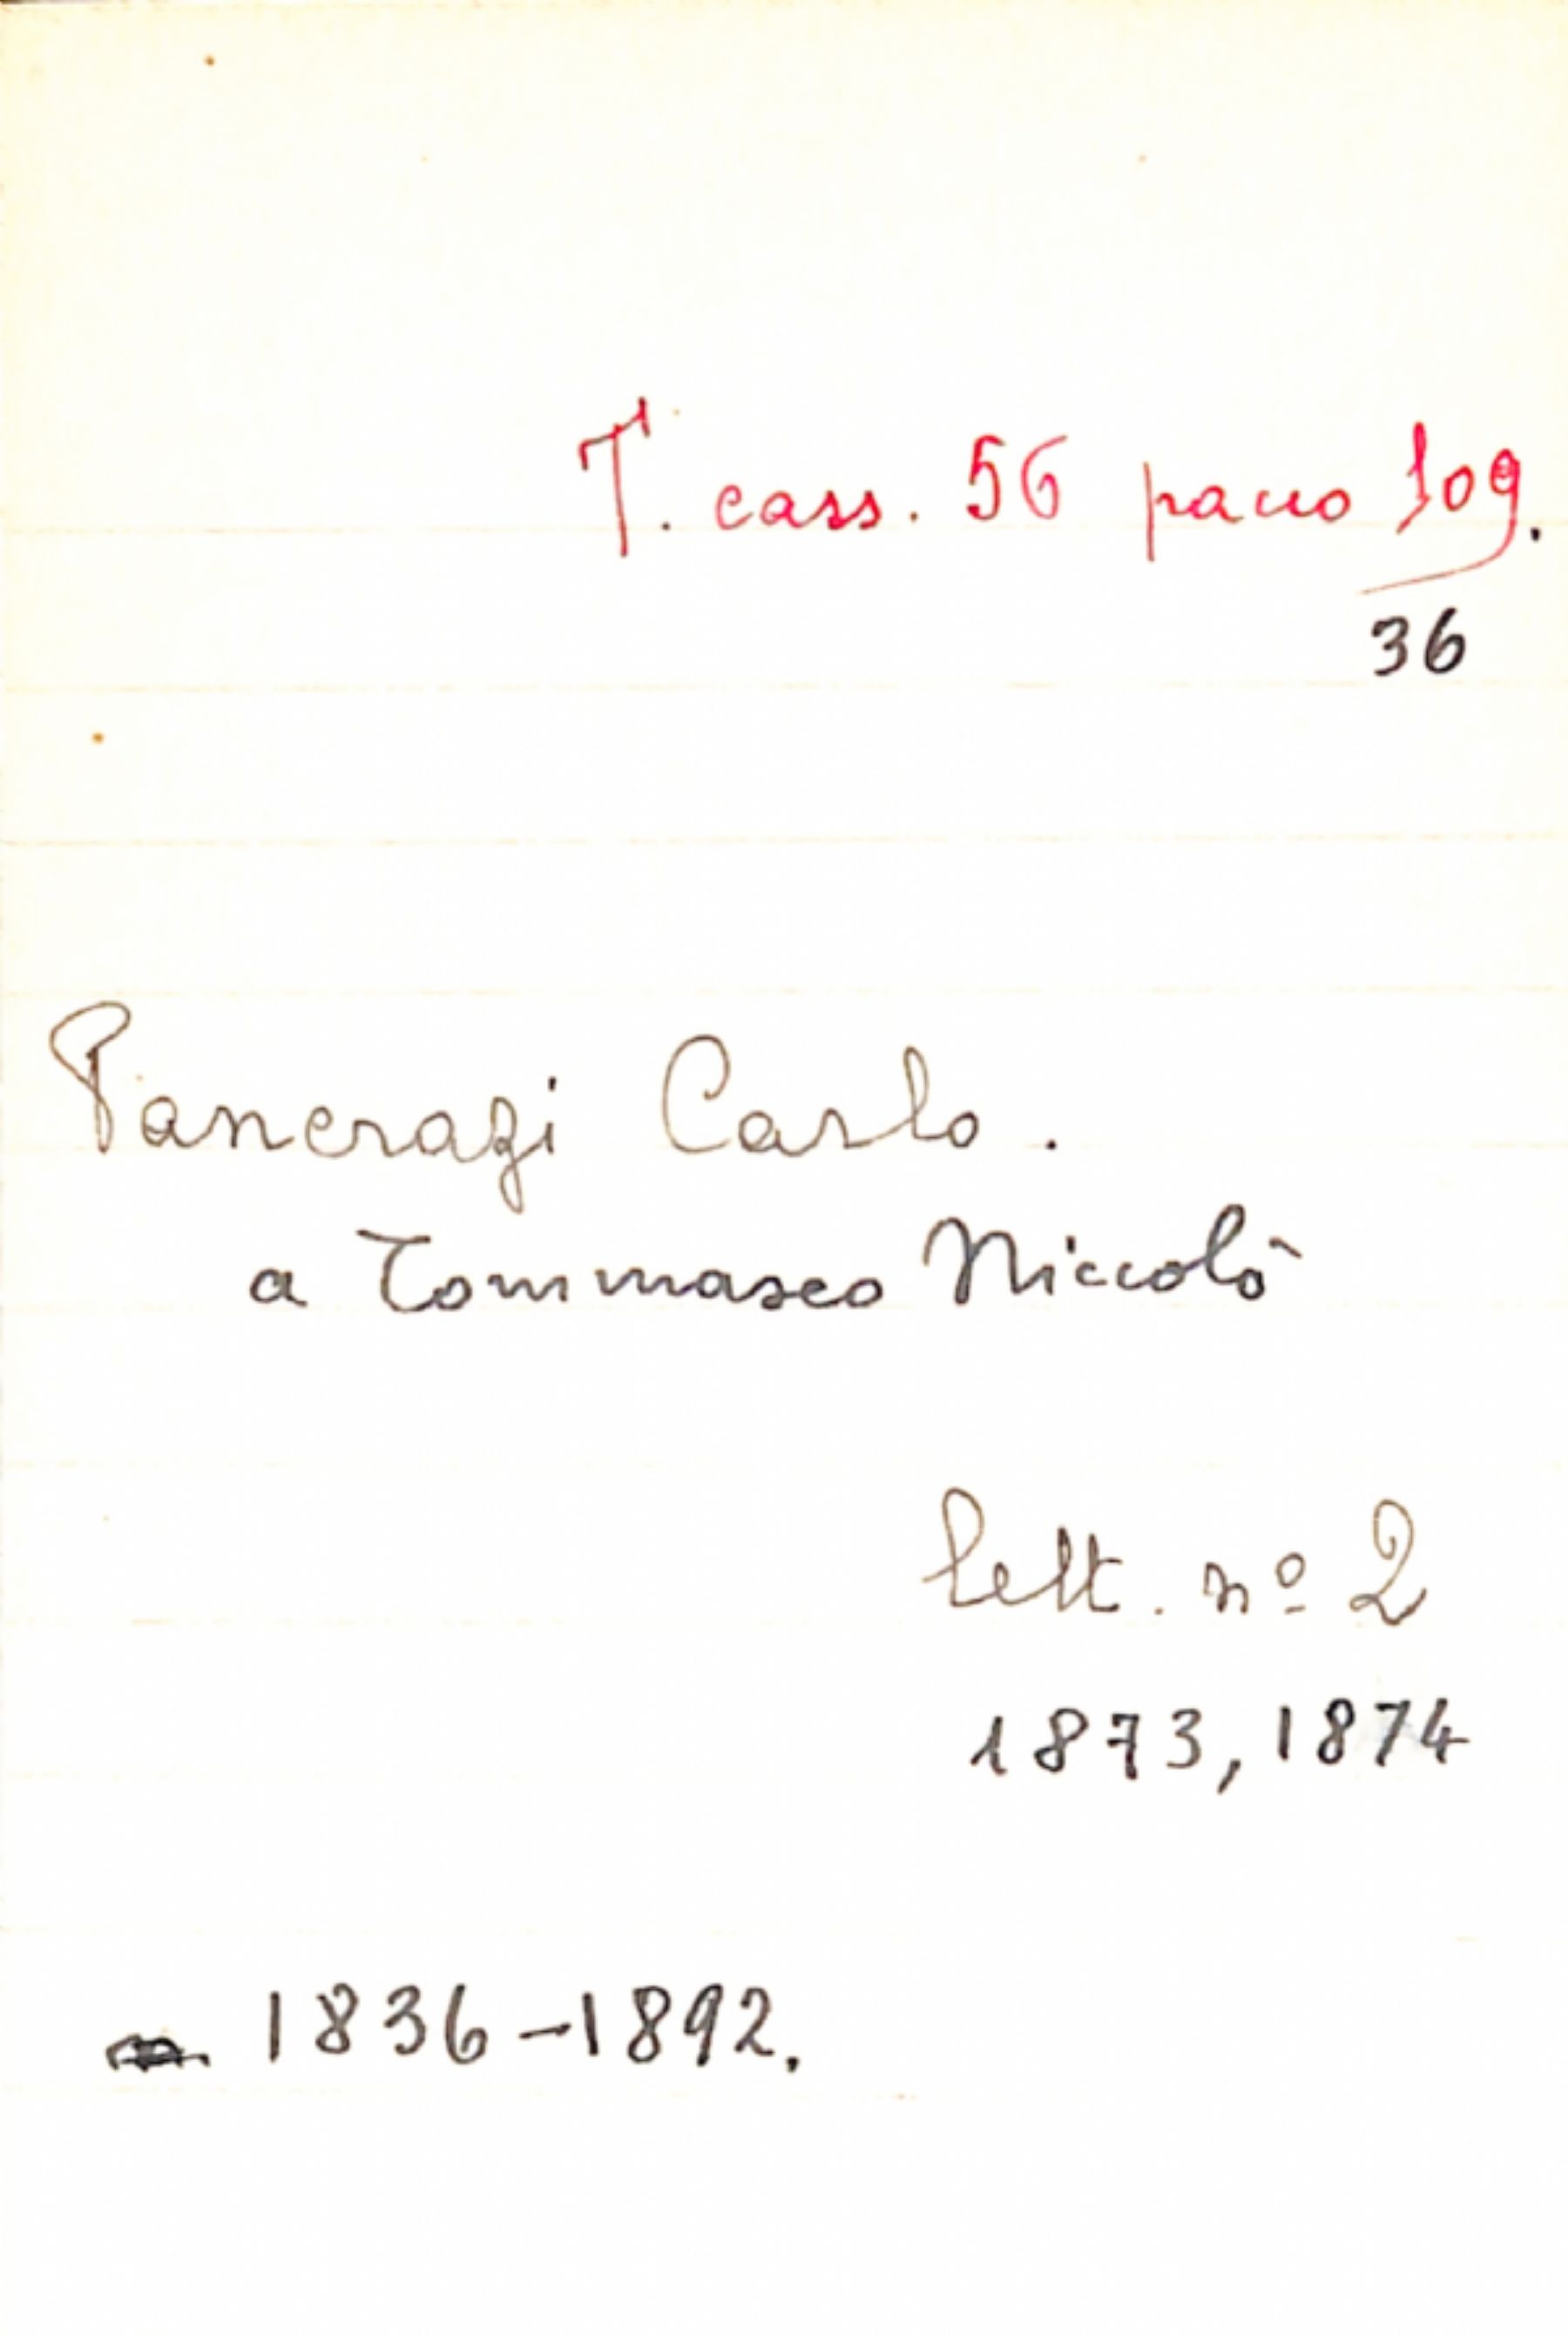 T. cass. 56 pacco 109.
36
Pancrazi Carlo.
a Tommaseo Niccolò
lett. nº 2
1873, 1874
1836-1892.